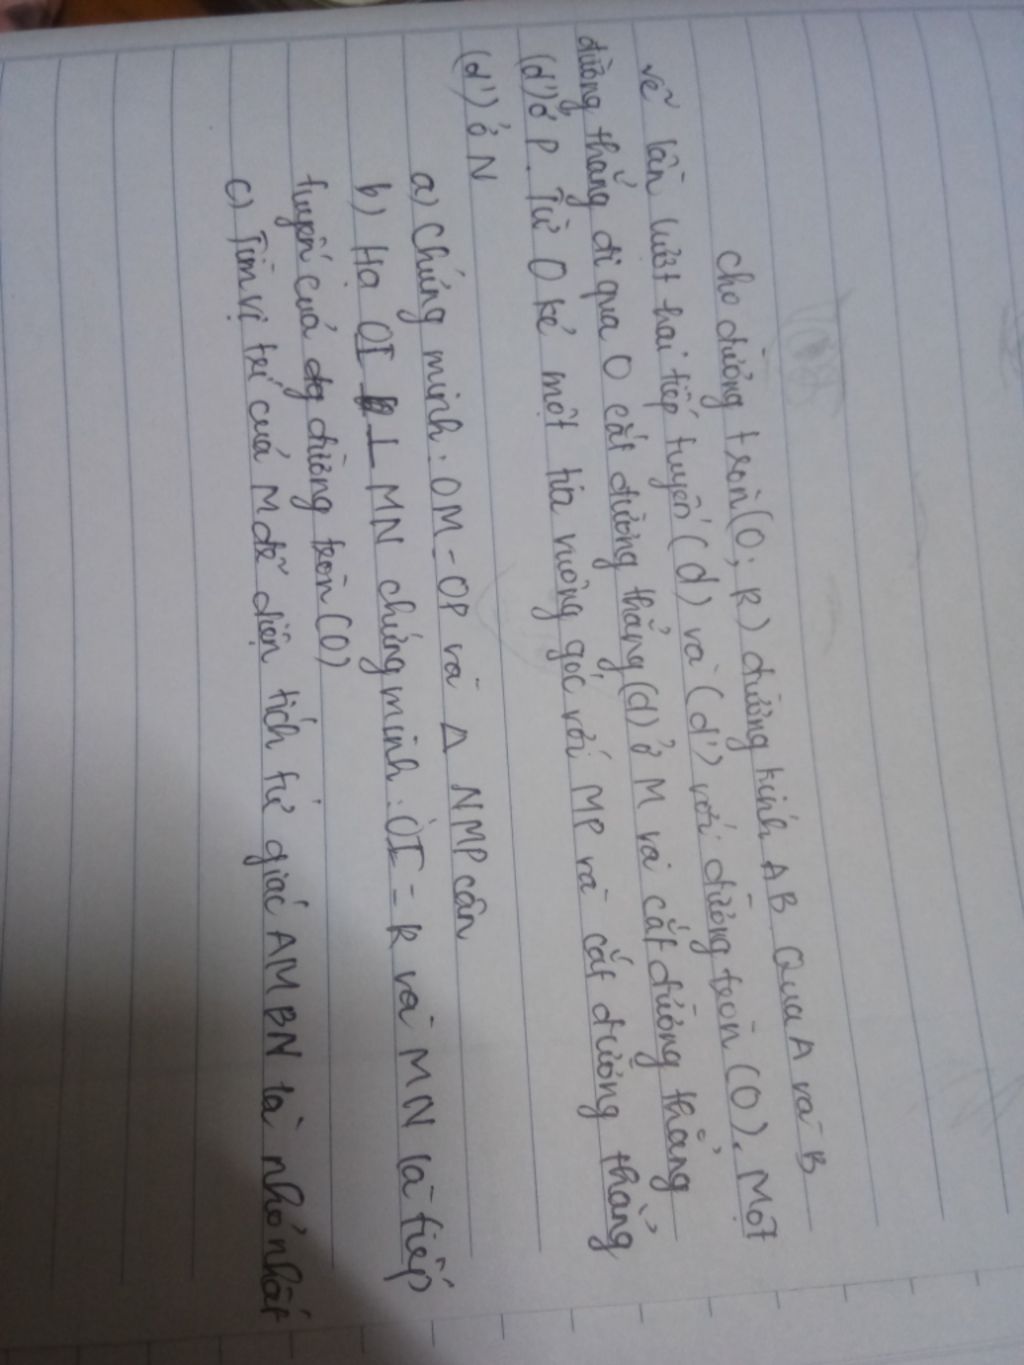 cho đường tròn (O; R) đường kính AB. Qua A và B
vẽ lần lượt hai tiếp tuyến (d) và (d') với đường tròn (O). Một
đường thẳng đi qua O cắt đường thẳng (d) ở M và cắt đường thẳng
(d') ở P. Từ O kẻ một tia vuông góc với MP và cắt đường thẳng
(d') ở N
a) Chứng minh: OM = OP và Δ NMP cân
b) Hạ OI ⊥ MN chứng minh: OI = R và MN là tiếp
tuyến của đường tròn (O)
c) Tìm vị trí của M để diện tích tứ giác AMBN là nhỏ nhất